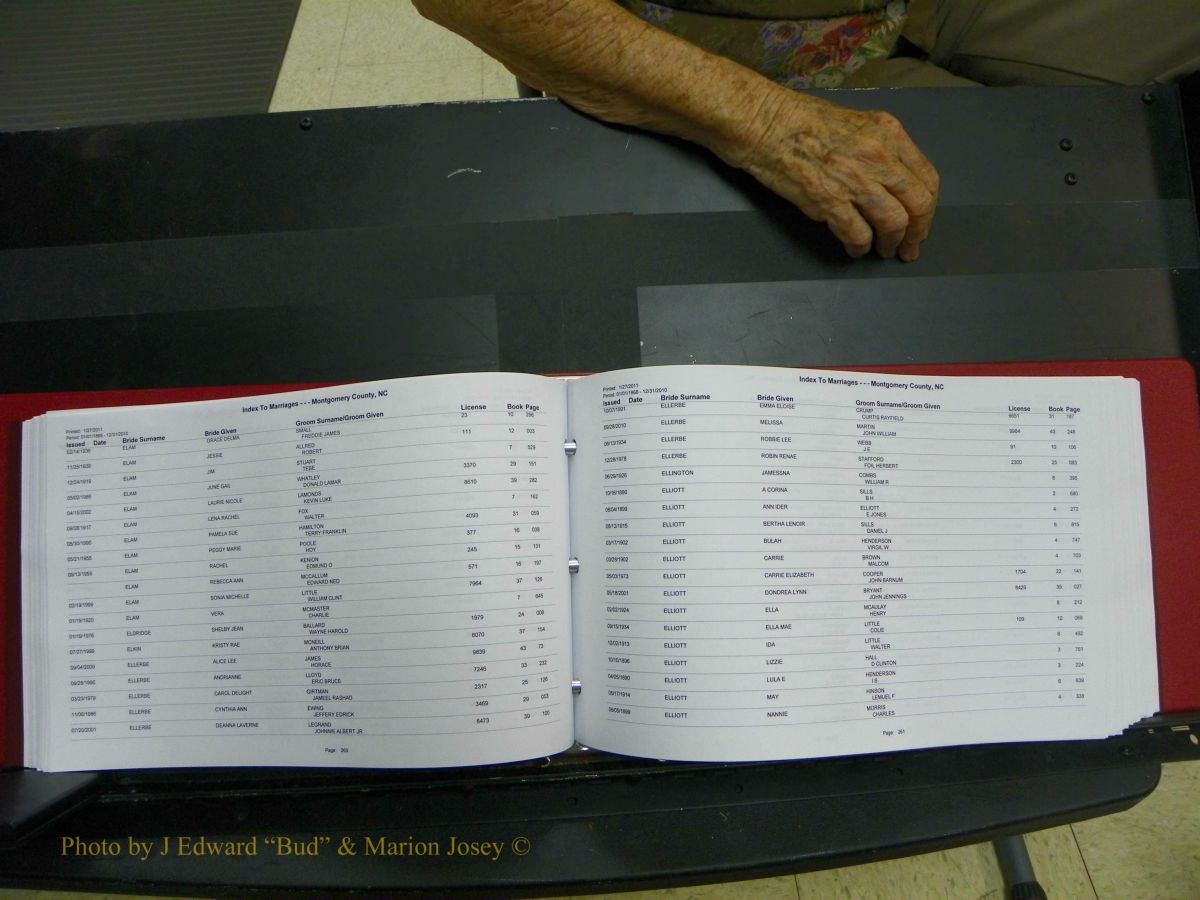 Index To Marriages - - - Montgomery County, NC
Printed: 1/27/2011
Period: 01/01/1868 - 12/31/2010
Issued Date Bride Surname Bride Given Groom Surname/Groom Given License Book Page
02/14/1936 ELAM GRACE DELMA SMALL 23 10 296
FREDDIE JAMES
11/25/1939 ELAM JESSIE ALLRED 111 12 003
ROBERT
12/24/1919 ELAM JIM STUART 7 529
TEBE
05/02/1986 ELAM JUNE GAIL WHATLEY 3370 29 151
DONALD LAMAR
04/15/2002 ELAM LAURIE NICOLE LAMONDS 8610 39 282
KEVIN LUKE
09/08/1917 ELAM LENA RACHEL FOX 7 162
WALTER
08/30/1990 ELAM PAMELA SUE HAMILTON 4093 31 059
TERRY FRANKLIN
05/21/1955 ELAM PEGGY MARIE POOLE 377 16 038
HOY
08/13/1955 ELAM RACHEL KENION 245 15 131
EDMUND O
ELAM REBECCA ANN MCCALLUM 571 16 197
EDWARD NED
02/19/1999 ELAM SONIA MICHELLE LITTLE 7964 37 126
WILLIAM CLINT
01/19/1920 ELAM VERA MCMASTER 7 645
CHARLIE
01/19/1976 ELDRIDGE SHELBY JEAN BALLARD 1979 24 009
WAYNE HAROLD
07/27/1999 ELKIN KRISTY RAE MCNEILL 8070 37 154
ANTHONY BRIAN
09/04/2009 ELLERBE ALICE LEE JAMES 9839 43 73
HORACE
09/28/1996 ELLERBE ANDRIANNE LLOYD 7246 33 232
ERIC BRUCE
03/23/1979 ELLERBE CAROL DELIGHT GIRTMAN 2317 25 126
JAMEEL RASHAD
11/06/1986 ELLERBE CYNTHIA ANN EWING 3469 29 053
JEFFERY EDRICK
07/20/2001 ELLERBE DEANNA LAVERNE LEGRAND 8473 39 100
JOHNNIE ALBERT JR
Page: 260
Index To Marriages - - - Montgomery County, NC
Printed: 1/27/2011
Period: 01/01/1868 - 12/31/2010
Issued Date Bride Surname Bride Given Groom Surname/Groom Given License Book Page
10/07/1991 ELLERBE EMMA ELOISE CRUMP 6651 31 197
CURTIS RAYFIELD
09/28/2010 ELLERBE MELISSA MARTIN 9984 43 248
JOHN WILLIAM
06/13/1934 ELLERBE ROBBIE LEE WEBB 91 10 106
J E
12/28/1978 ELLERBE ROBIN RENAE STAFFORD 2300 25 083
FOIL HERBERT
06/29/1926 ELLINGTON JAMESSNA COMBS 8 395
WILLIAM R
10/16/1890 ELLIOTT A CORINA SILLS 2 680
B H
08/04/1899 ELLIOTT ANN IDER ELLIOTT 4 272
E JONES
08/13/1915 ELLIOTT BERTHA LENOIR SILLS 6 815
DANIEL J
03/17/1902 ELLIOTT BULAH HENDERSON 4 747
VIRGIL W
03/29/1902 ELLIOTT CARRIE BROWN 4 703
MALCOM
05/03/1973 ELLIOTT CARRIE ELIZABETH COOPER 1704 22 141
JOHN BARNUM
05/18/2001 ELLIOTT DONDREA LYNN BRYANT 8429 39 027
JOHN JENNINGS
02/02/1924 ELLIOTT ELLA MCAULAY 8 212
HENRY
09/15/1934 ELLIOTT ELLA MAE LITTLE 109 10 069
COLIE
12/02/1913 ELLIOTT IDA LITTLE 6 492
WALTER
10/10/1896 ELLIOTT LIZZIE HALL 3 761
D CLINTON
04/05/1890 ELLIOTT LULA E HENDERSON 3 224
I S
05/17/1914 ELLIOTT MAY HINSON 6 639
LEMUEL F
05/05/1899 ELLIOTT NANNIE MORRIS 4 338
CHARLES
Page: 261
Photo by J Edward “Bud” & Marion Josey ©